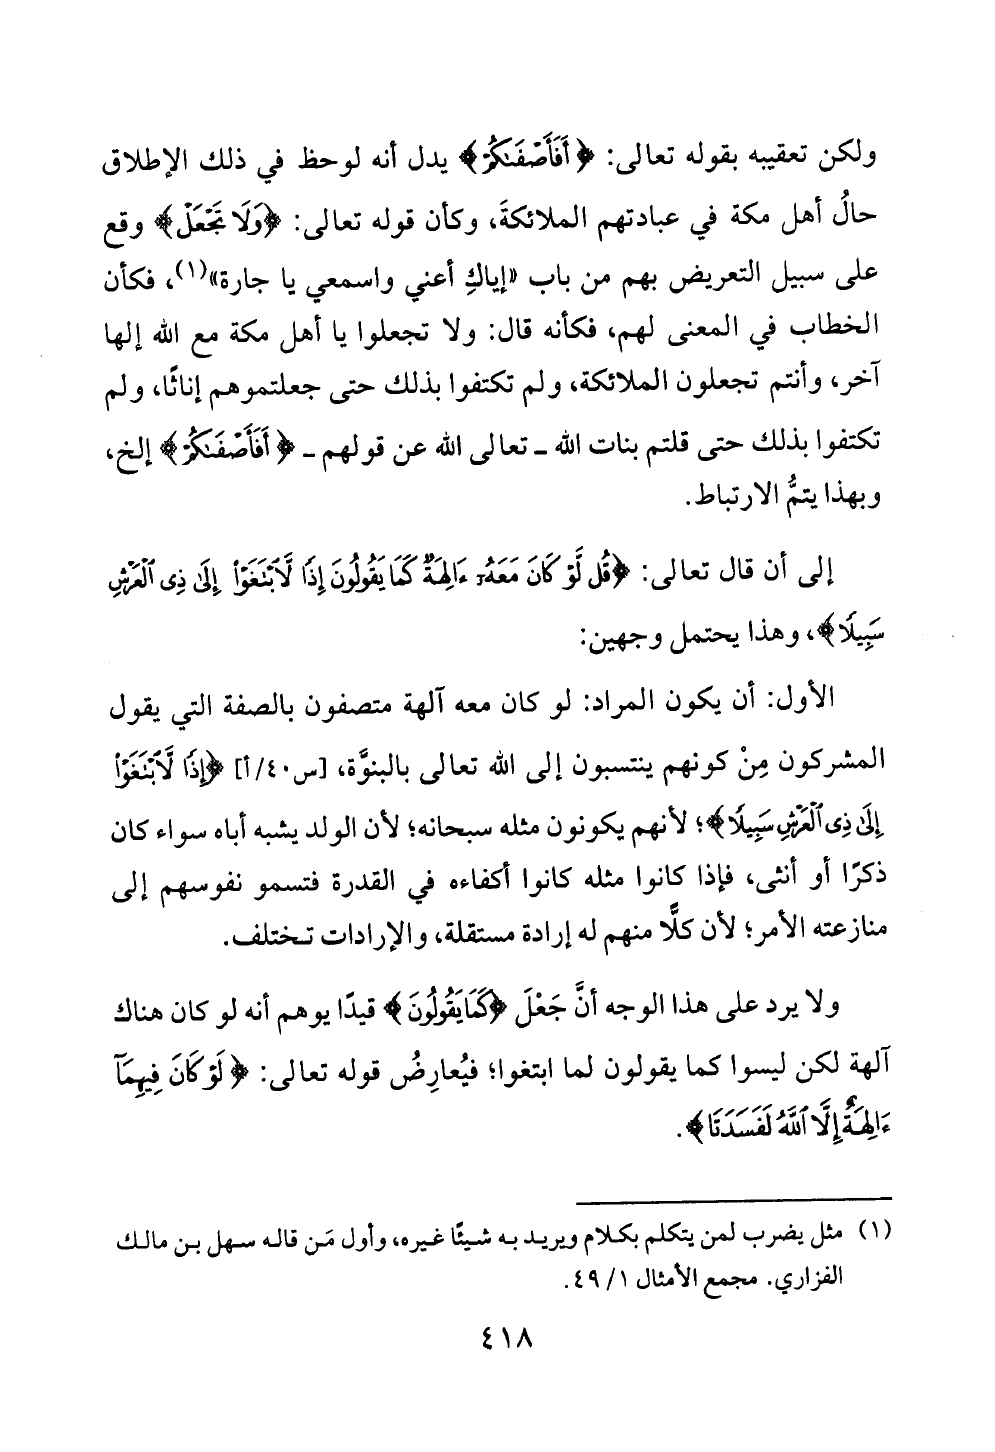 ولكن تعقيبه بقوله تعالى: ﴿أَفَأَصْفَىٰكُمْ﴾ يدل أنه لوحظ في ذلك الإطلاق
حالُ أهل مكة في عبادتهم الملائكةَ، وكأن قوله تعالى: ﴿وَلَا تَجْعَلْ﴾ وقع
على سبيل التعريض بهم من باب «إياكِ أعني واسمعي يا جارة»(١)، فكأن
الخطاب في المعنى لهم، فكأنه قال: ولا تجعلوا يا أهل مكة مع الله إلها
آخر، وأنتم تجعلون الملائكة، ولم تكتفوا بذلك حتى جعلتموهم إناثًا، ولم
تكتفوا بذلك حتى قلتم بنات الله ـ تعالى الله عن قولهم ـ ﴿أَفَأَصْفَىٰكُمْ﴾ إلخ،
وبهذا يتمُّ الارتباط.
إلى أن قال تعالى: ﴿قُل لَّوْ كَانَ مَعَهُۥٓ ءَالِهَةٌ كَمَا يَقُولُونَ إِذًا لَّٱبْتَغَوْا۟ إِلَىٰ ذِى ٱلْعَرْشِ
سَبِيلًا﴾، وهذا يحتمل وجهين:
الأول: أن يكون المراد: لو كان معه آلهة متصفون بالصفة التي يقول
المشركون مِنْ كونهم ينتسبون إلى الله تعالى بالبنوَّة، [س٤٠/أ] ﴿إِذًا لَّٱبْتَغَوْا۟
إِلَىٰ ذِى ٱلْعَرْشِ سَبِيلًا﴾؛ لأنهم يكونون مثله سبحانه؛ لأن الولد يشبه أباه سواء كان
ذكرًا أو أنثى، فإذا كانوا مثله كانوا أكفاءه في القدرة فتسمو نفوسهم إلى
منازعته الأمر؛ لأن كلًّا منهم له إرادة مستقلة، والإرادات تختلف.
ولا يرد على هذا الوجه أنَّ جَعْلَ ﴿كَمَا يَقُولُونَ﴾ قيدًا يوهم أنه لو كان هناك
آلهة لكن ليسوا كما يقولون لما ابتغوا؛ فيُعارِضُ قوله تعالى: ﴿لَوْ كَانَ فِيهِمَآ
ءَالِهَةٌ إِلَّا ٱللَّهُ لَفَسَدَتَا﴾.
(١) مثل يضرب لمن يتكلم بكلام ويريد به شيئًا غيره، وأول مَن قاله سهل بن مالك
الفزاري. مجمع الأمثال ١/ ٤٩.
٤١٨